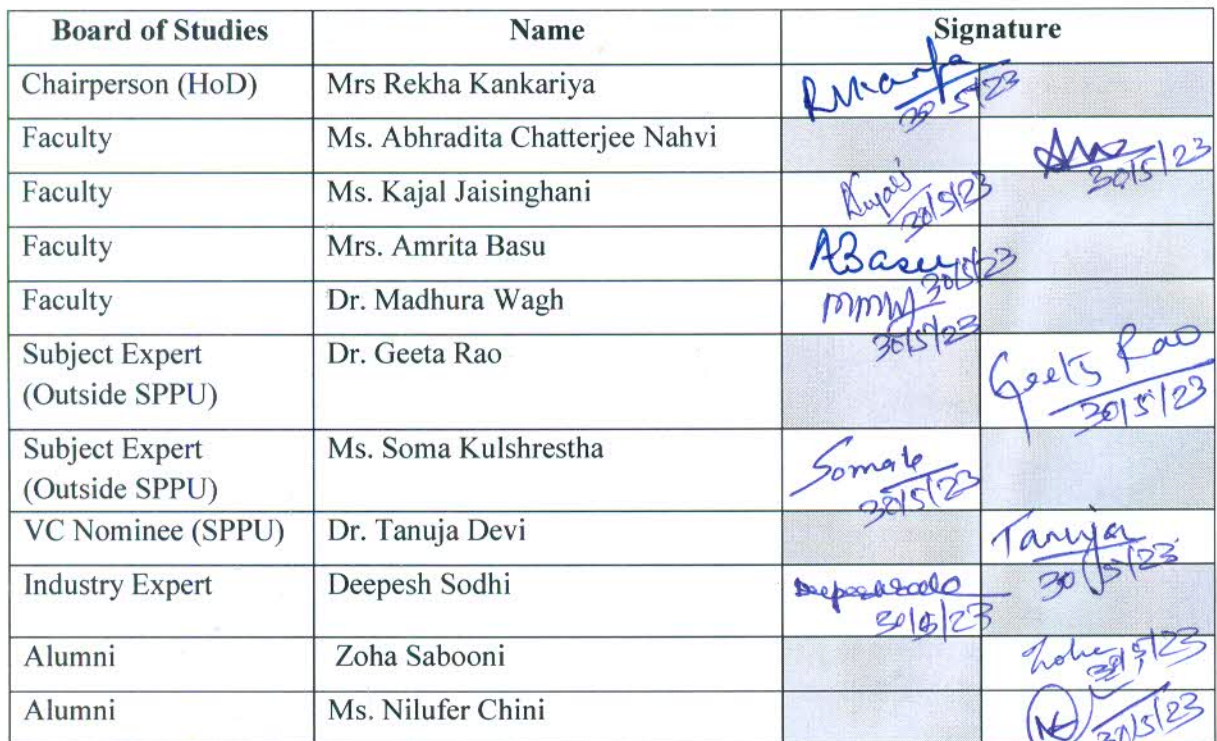 Board of Studies Name Signature
Chairperson (HoD) Mrs Rekha Kankariya
30/5/23
Faculty Ms. Abhradita Chatterjee Nahvi
30/5/23
Faculty Ms. Kajal Jaisinghani
30/5/23
Faculty Mrs. Amrita Basu ABasu
30/5/23
Faculty Dr. Madhura Wagh
30/5/23
Subject Expert Dr. Geeta Rao Geeta Rao
(Outside SPPU) 30/5/23
Subject Expert Ms. Soma Kulshrestha
(Outside SPPU) 30/5/23
VC Nominee (SPPU) Dr. Tanuja Devi Tanuja
30/5/23
Industry Expert Deepesh Sodhi
30/5/23
Alumni Zoha Sabooni Zoha
30/5/23
Alumni Ms. Nilufer Chini
30/5/23